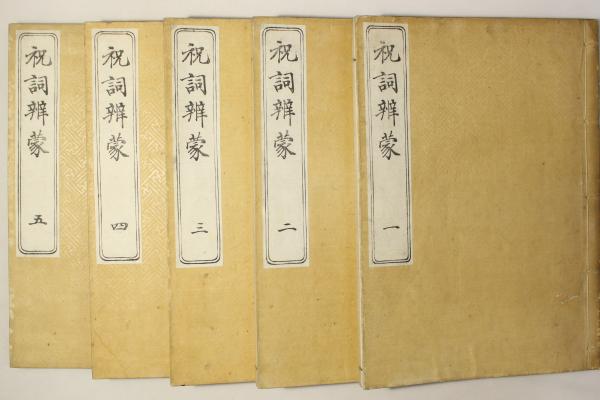 祝詞辨蒙 一
祝詞辨蒙 二
祝詞辨蒙 三
祝詞辨蒙 四
祝詞辨蒙 五